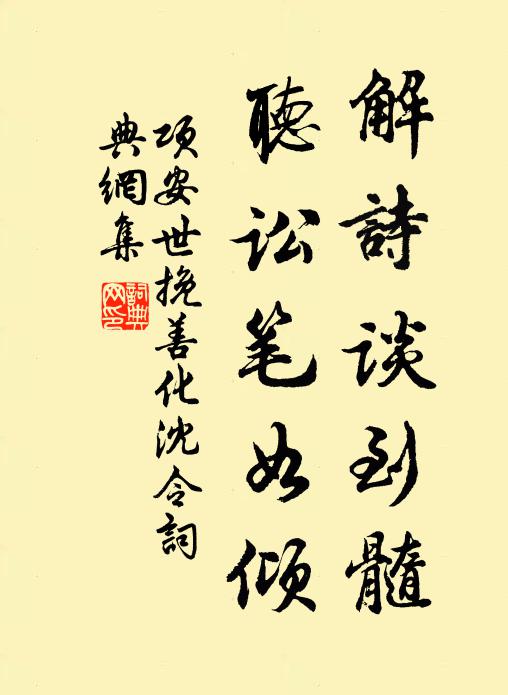 解詩談到髓
聽訟笔如傾
项安世挽善化沈令詞
典網集
詞典
网印